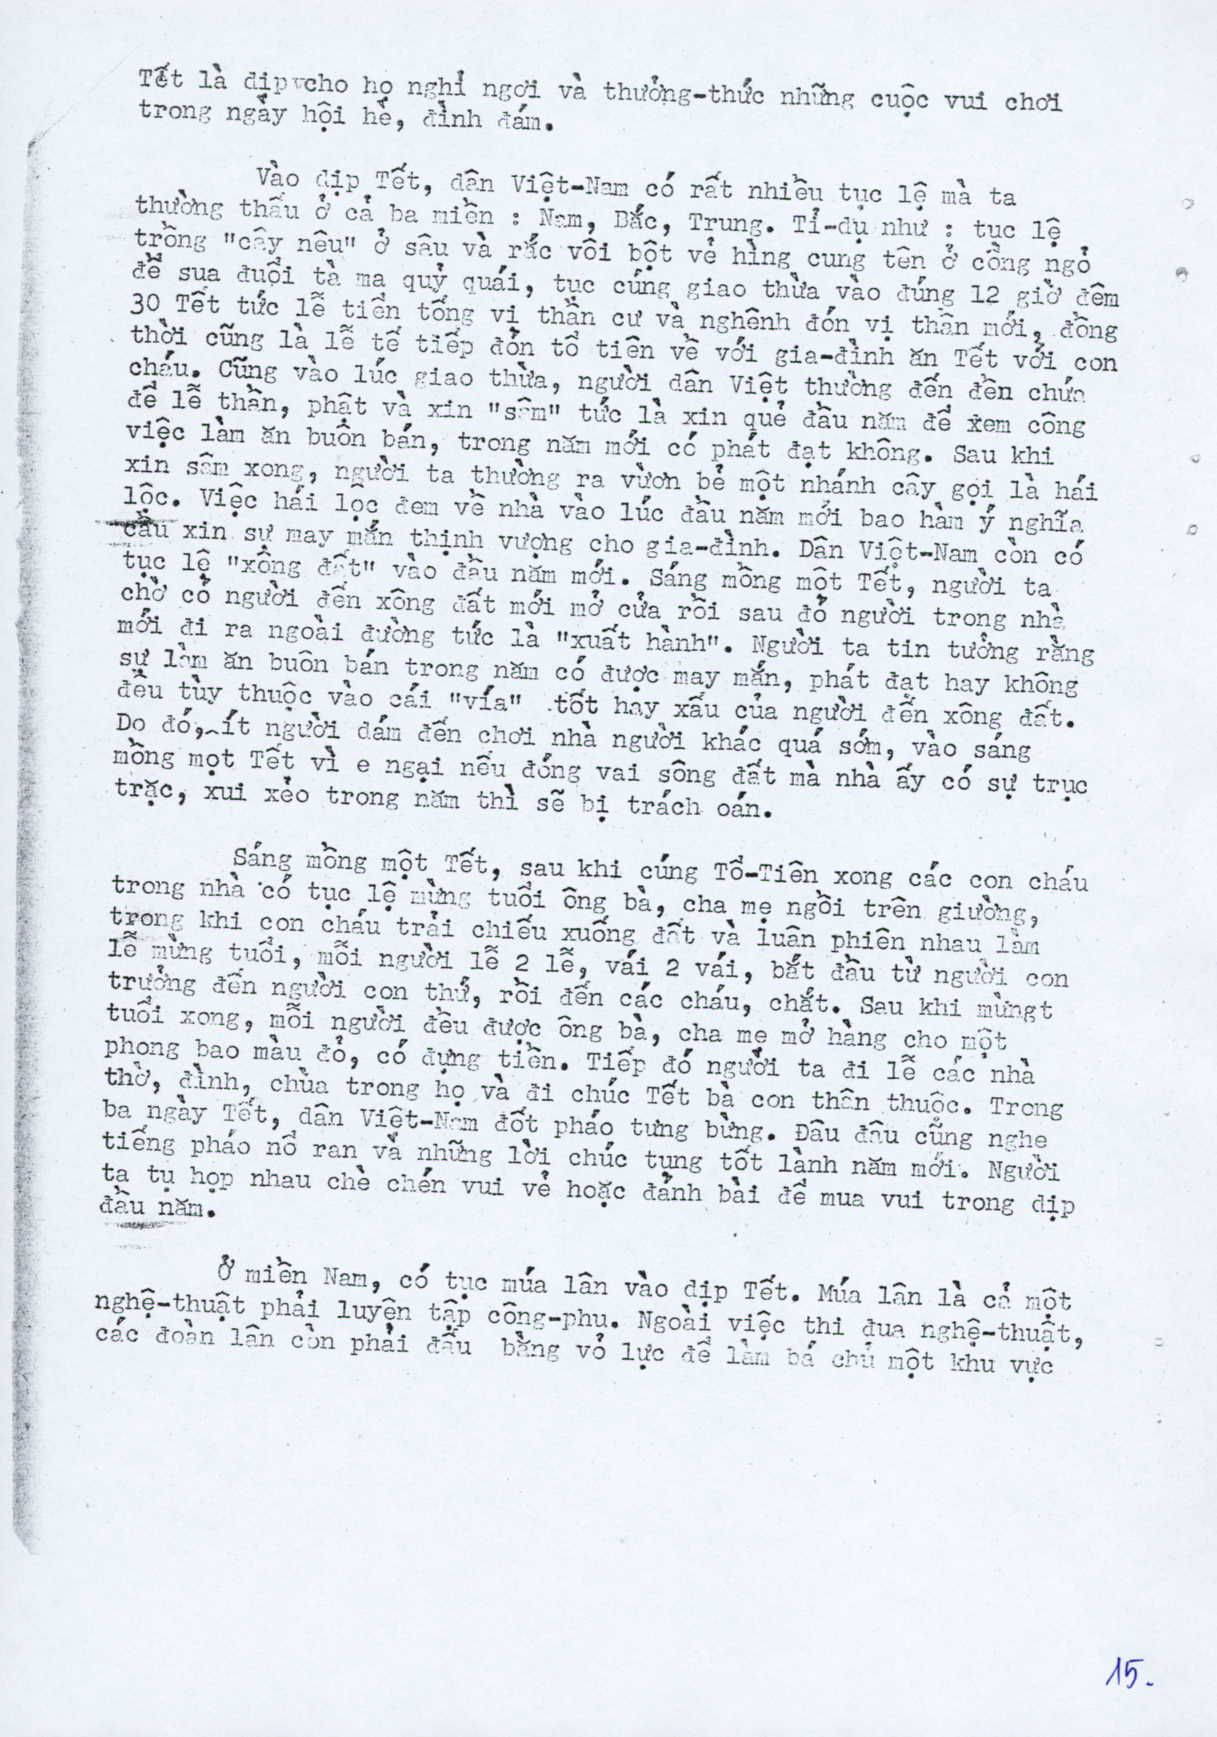 Tết là dịp cho họ nghỉ ngơi và thưởng-thức những cuộc vui chơi
trong ngày hội hè, đình đám.
Vào dịp Tết, dân Việt-Nam có rất nhiều tục lệ mà ta
thường thấu ở cả ba miền : Nam, Bắc, Trung. Tỉ-dụ như : tục lệ
trồng "cây nêu" ở sâu và rắc vôi bột vẻ hìng cung tên ở cồng ngỏ
để sua đuổi tà ma quỷ quái, tục cúng giao thừa vào đúng 12 giờ đêm
30 Tết tức lễ tiển tống vị thần cư và nghênh đón vị thần mới, đồng
thời cũng là lễ tế tiếp đón tổ tiên về với gia-đình ăn Tết với con
cháu. Cũng vào lúc giao thừa, người dân Việt thường đến đền chùa
để lễ thần, phật và xin "sâm" tức là xin quẻ đầu năm để xem công
việc làm ăn buôn bán, trong năm mới có phát đạt không. Sau khi
xin sâm xong, người ta thường ra vườn bẻ một nhánh cây gọi là hái
lộc. Việc hái lộc đem về nhà vào lúc đầu năm mới bao hàm ý nghĩa
cầu xin sự may mắn thịnh vượng cho gia-đình. Dân Việt-Nam còn có
tục lệ "xông đất" vào đầu năm mới. Sáng mồng một Tết, người ta
chờ có người đến xông đất mới mở cửa rồi sau đó người trong nhà
mới đi ra ngoài đường tức là "xuất hành". Người ta tin tưởng rằng
sự làm ăn buôn bán trong năm có được may mắn, phát đạt hay không
đều tùy thuộc vào cái "vía" tốt hay xấu của người đến xông đất.
Do đó, ít người dám đến chơi nhà người khác quá sớm, vào sáng
mồng mọt Tết vì e ngại nếu đóng vai sông đất mà nhà ấy có sự trục
trặc, xui xẻo trong năm thì sẽ bị trách oán.
Sáng mồng một Tết, sau khi cúng Tổ-Tiên xong các con cháu
trong nhà có tục lệ mừng tuổi ông bà, cha mẹ ngồi trên giường,
trong khi con cháu trải chiếu xuống đất và luân phiên nhau làm
lễ mừng tuổi, mỗi người lễ 2 lễ, vái 2 vái, bắt đầu từ người con
trưởng đến người con thứ, rồi đến các cháu, chắt. Sau khi mừngt
tuổi xong, mỗi người đều được ông bà, cha mẹ mở hàng cho một
phong bao màu đỏ, có đựng tiền. Tiếp đó người ta đi lễ các nhà
thờ, đình, chùa trong họ và đi chúc Tết bà con thân thuộc. Trong
ba ngày Tết, dân Việt-Nam đốt pháo tưng bừng. Đâu đâu cũng nghe
tiếng pháo nổ ran và những lời chúc tụng tốt lành năm mới. Người
ta tụ họp nhau chè chén vui vẻ hoặc đánh bài để mua vui trong dịp
đầu năm.
Ở miền Nam, có tục múa lân vào dịp Tết. Múa lân là cả một
nghệ-thuật phải luyện tập công-phu. Ngoài việc thi đua nghệ-thuật,
các đoàn lân còn phải đấu bằng vỏ lực để làm bá chủ một khu vực
15.